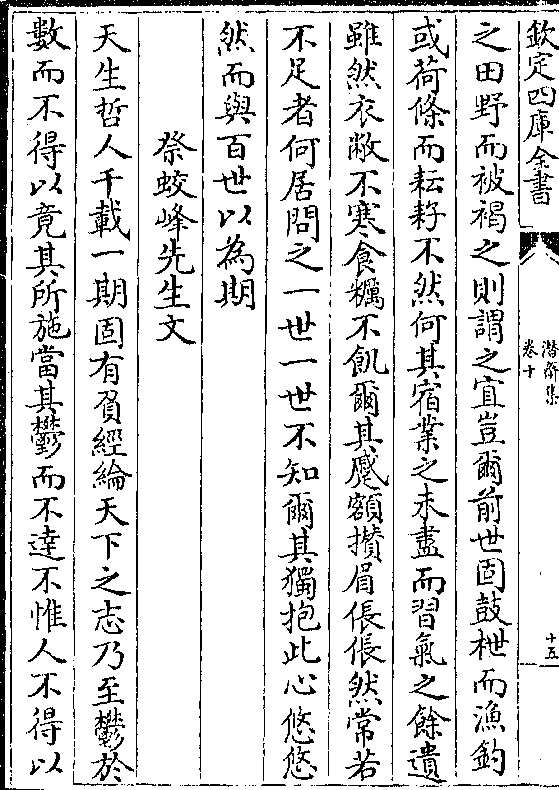 欽定四庫全書
潛齋集
卷十
十五
之田野而被褐之則謂之宜豈爾前世固鼓枻而漁釣
或荷條而耘耔不然何其宿業之未盡而習氣之餘遺
雖然衣敝不寒食糲不飢爾其蹙額攢眉倀倀然常若
不足者何居問之一世一世不知爾其獨抱此心悠悠
然而與百世以為期
祭蛟峰先生文
天生哲人千載一期固有負經綸天下之志乃至鬱於
數而不得以竟其所施當其鬱而不達不惟人不得以